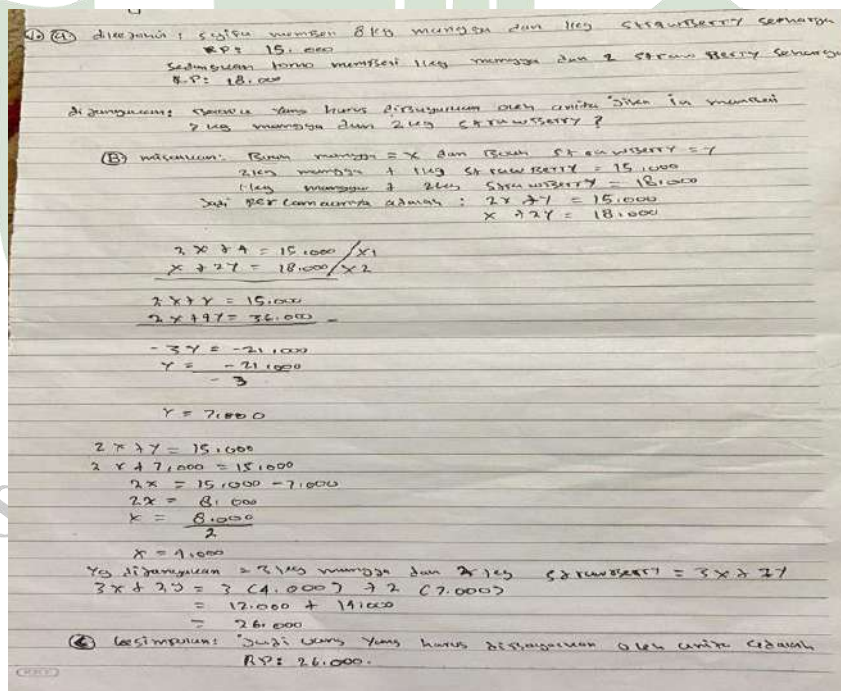 1. (A) diketahui : syifa membeli 2 kg mangga dan 1 kg strawberry seharga
RP: 15.000
sedangkan tomo membeli 1 kg mangga dan 2 strawberry seharga
R.P: 18.000
ditanyakan: yang harus dibayarkan oleh anita jika in membeli
2 kg mangga dan 2 kg strawberry ?
(B) misalkan: Buah mangga = x dan Buah strawberry = y
2 kg mangga + 1 kg strawberry = 15.000
1 kg mangga + 2 kg strawberry = 18.000
Jadi persamaannya adalah : 2x + y = 15.000
x + 2y = 18.000
2x + y = 15.000 / x1
x + 2y = 18.000 / x2
2x + y = 15.000
2x + 4y = 36.000 -
-3y = -21.000
y = -21.000
-3
y = 7.000
2x + y = 15.000
2x + 7.000 = 15.000
2x = 15.000 - 7.000
2x = 8.000
x = 8.000
2
x = 4.000
Yg ditanyakan = 3 kg mangga dan 2 kg strawberry = 3x + 2y
3x + 2y = 3 (4.000) + 2 (7.000)
= 12.000 + 14.000
= 26.000
(C) kesimpulan: Jadi uang yang harus dibayarkan oleh anita adalah
RP: 26.000.